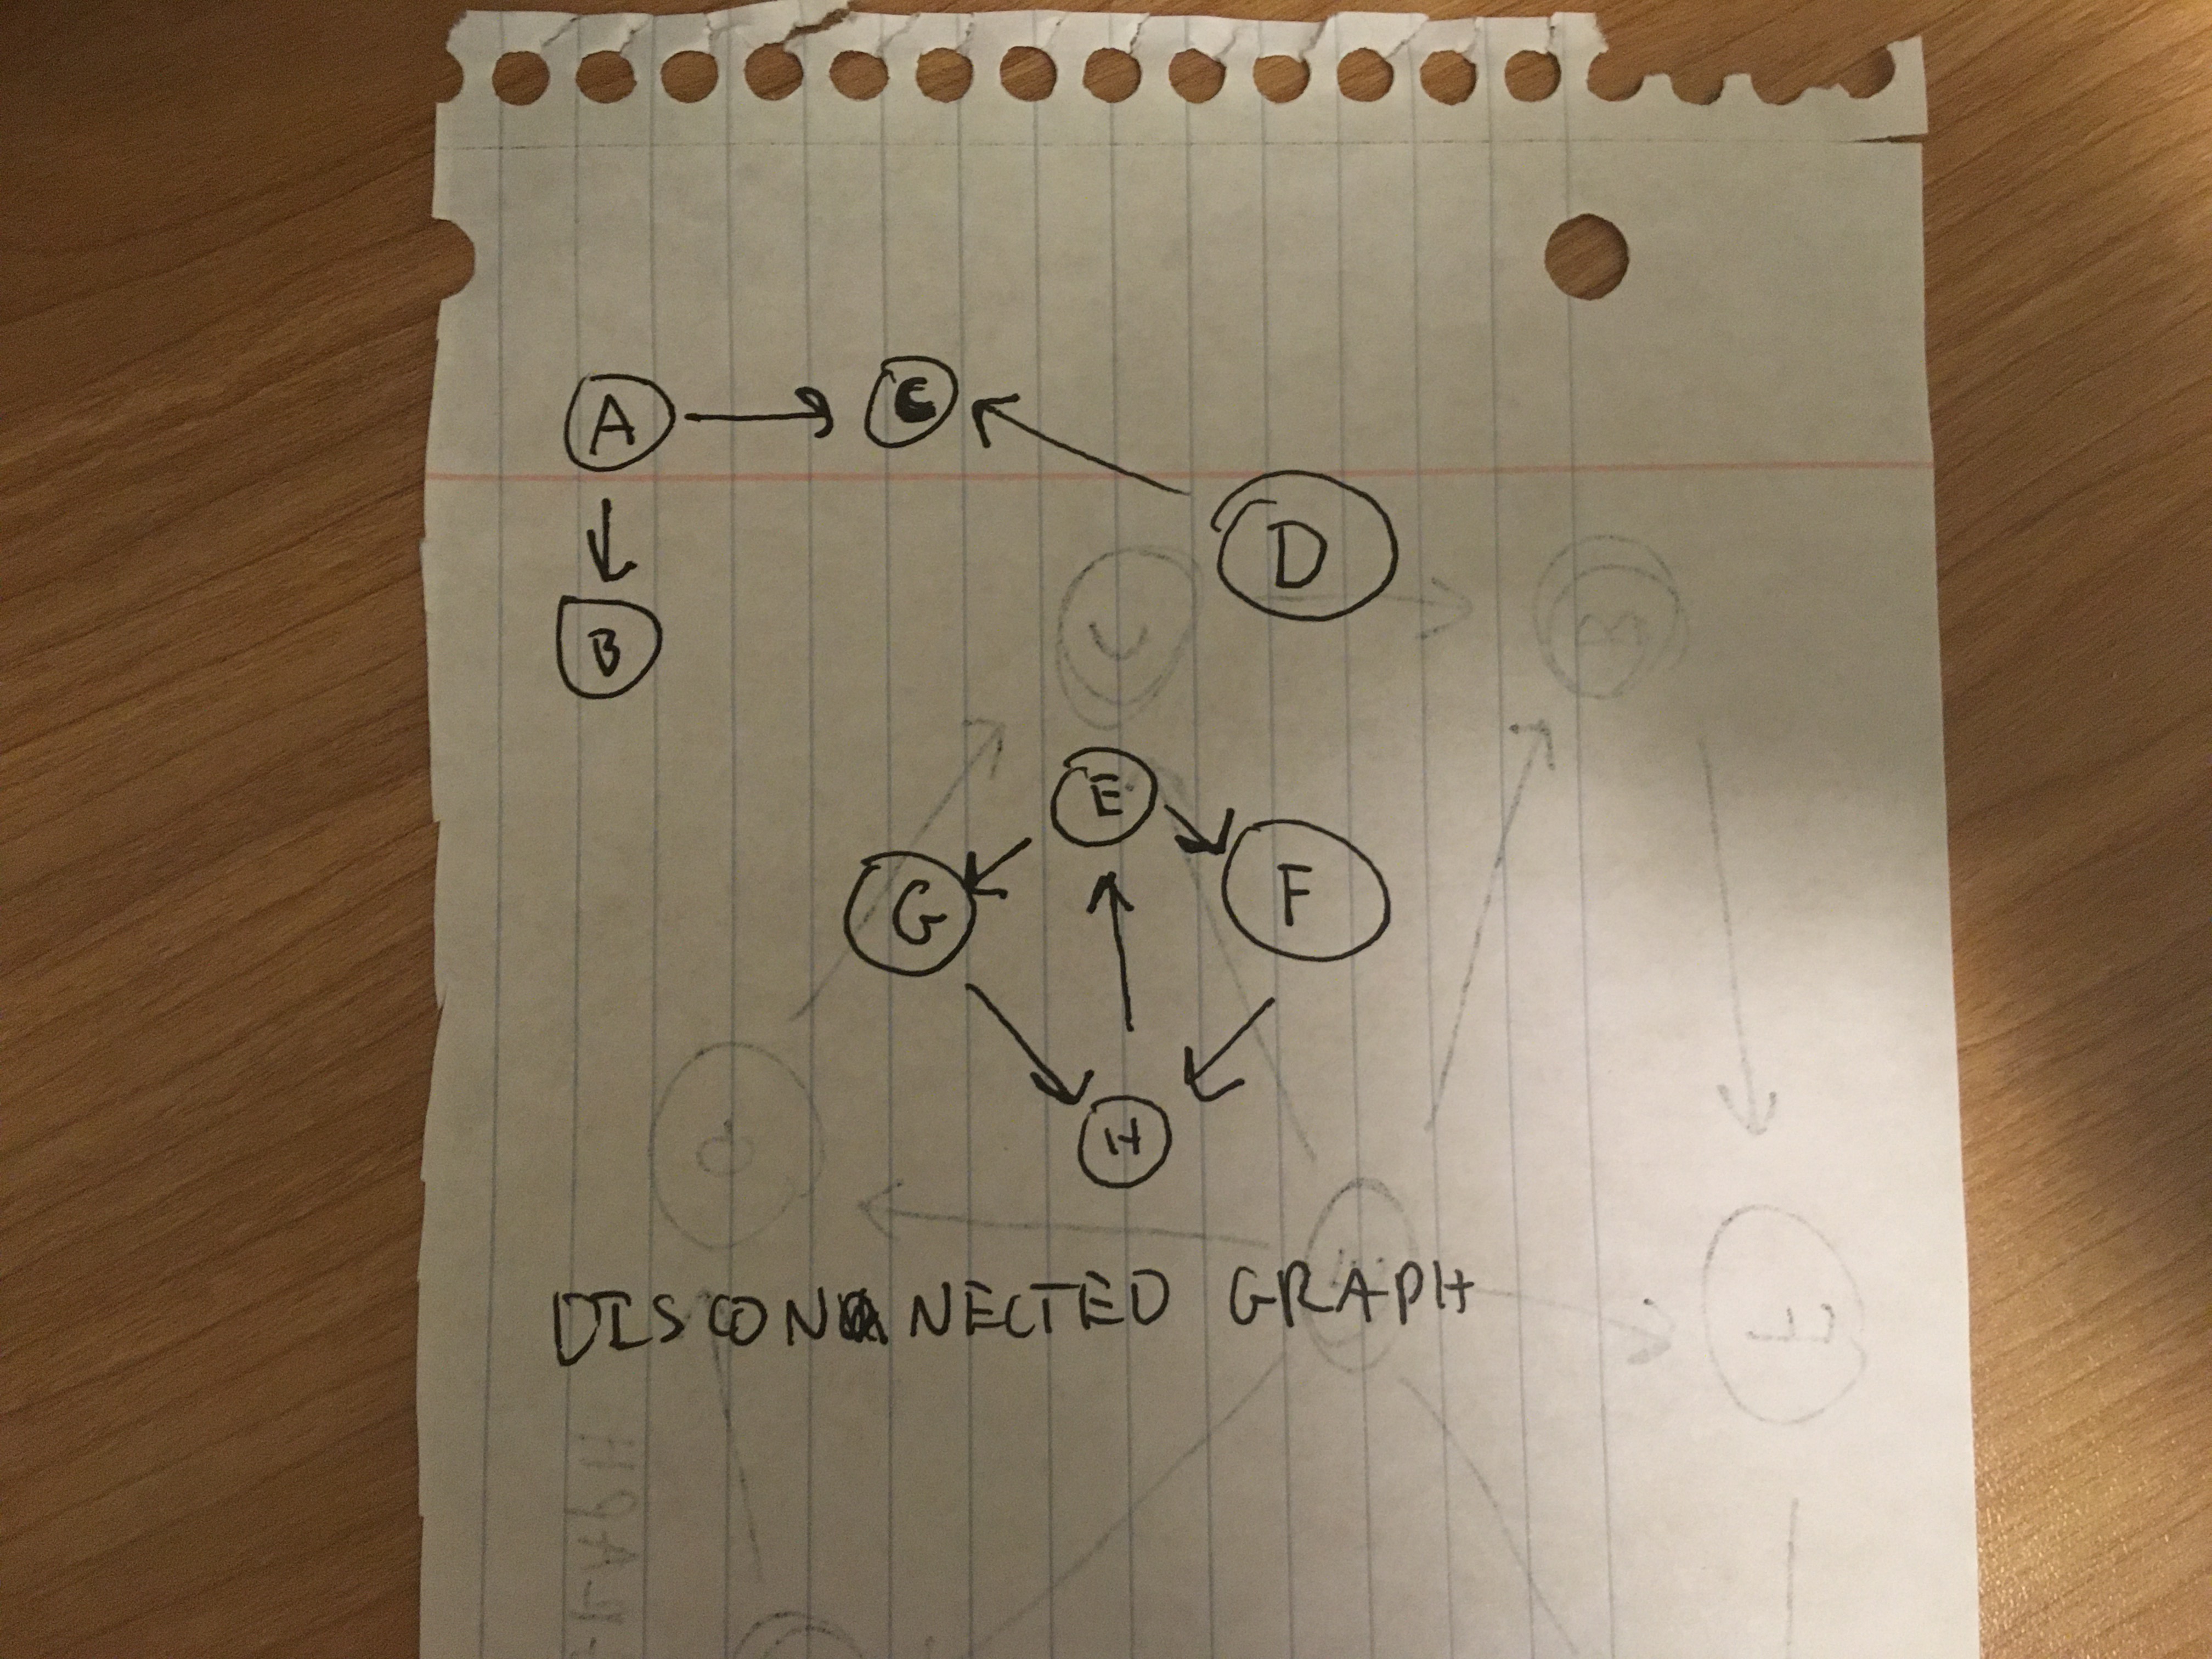 A C
D
B
E
G F
H
DISCONNECTED GRAPH